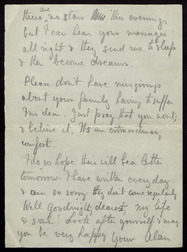 There are no stars this evening
but I can hear your messages
all right & they send me to sleep
& then become dreams.
Please don't have misgivings
about your family having to suffer
I'm dear. Just pray that you wont
& believe it. It's an extraordinary
comfort.
I do so hope there will be a letter
tomorrow. I have written every day
& am so sorry they dont come regularly
Well Goodnight dearest my life
& soul. Look after yourself & may
you be very happy Your Alan